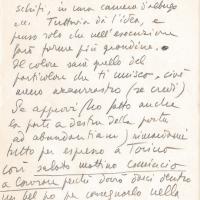 schifi, in una camera d'albergo
ecc. Tuttavia dà l'idea, e
penso solo che nell'esecuzione
farò forme più grandine.
Il colore sarà quello del
particolare che ti unisco, cioè
meno azzurrastro (se credi)
Se approvi (ho fatto anche
la parte a destra della porta
ad abundantiam) rimandami
tutto per espresso a Torino
così sabato mattina comincio
a lavorare perché dovrò darci dentro
un bel po' per consegnarlo nella